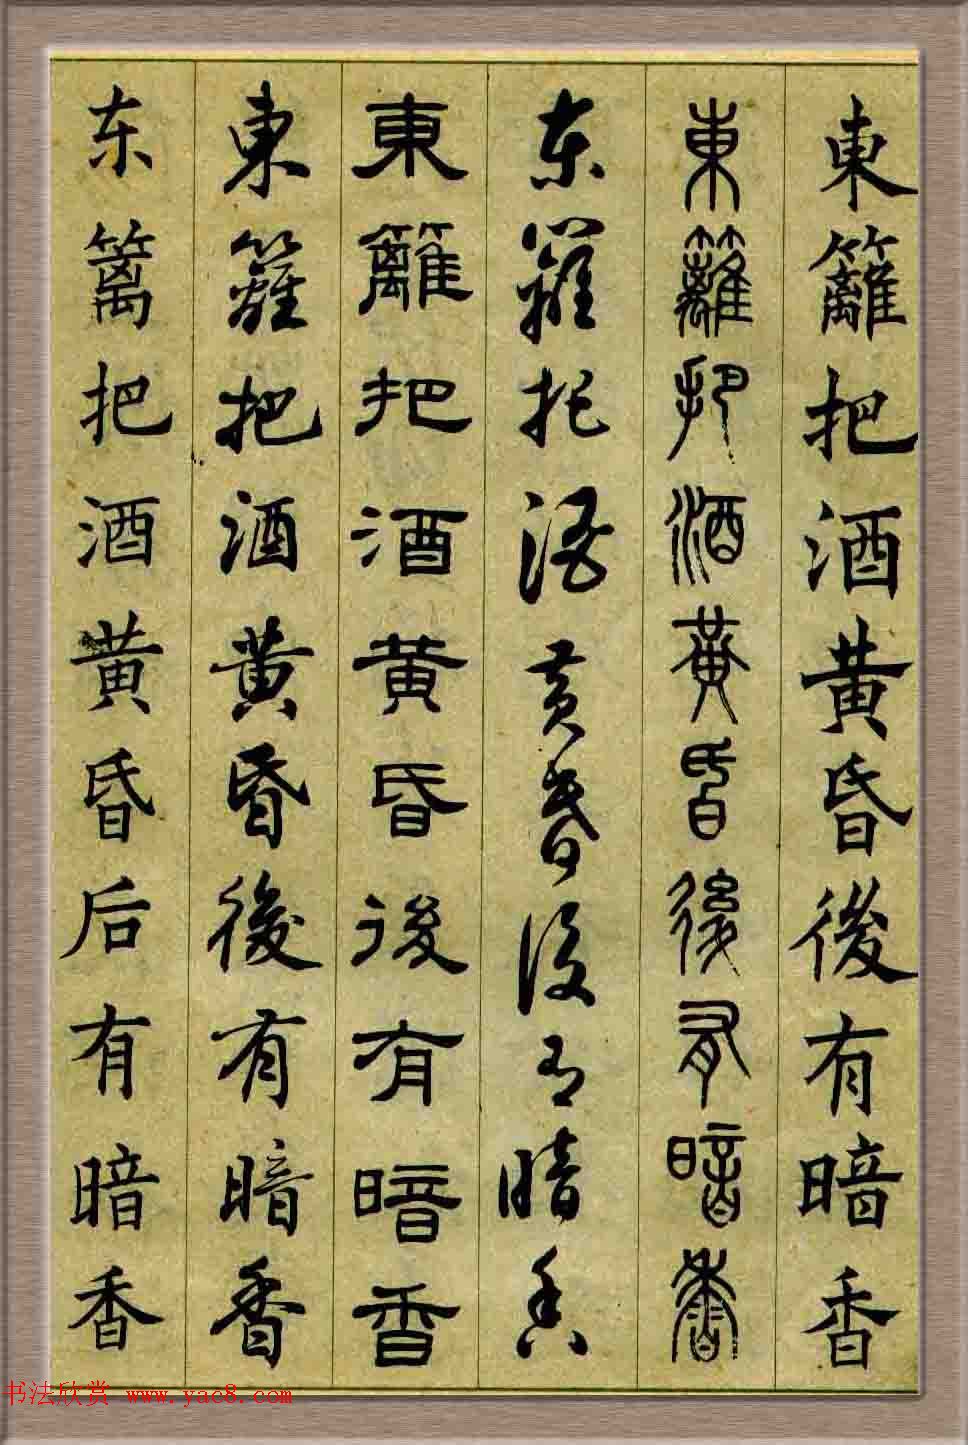 東籬把酒黄昏後有暗香
東籬把酒黄昏後有暗香
东籬把酒黄昏後有暗香
東籬把酒黄昏後有暗香
東籬把酒黄昏後有暗香
东篱把酒黄昏后有暗香
书法欣赏 www.yac8.com